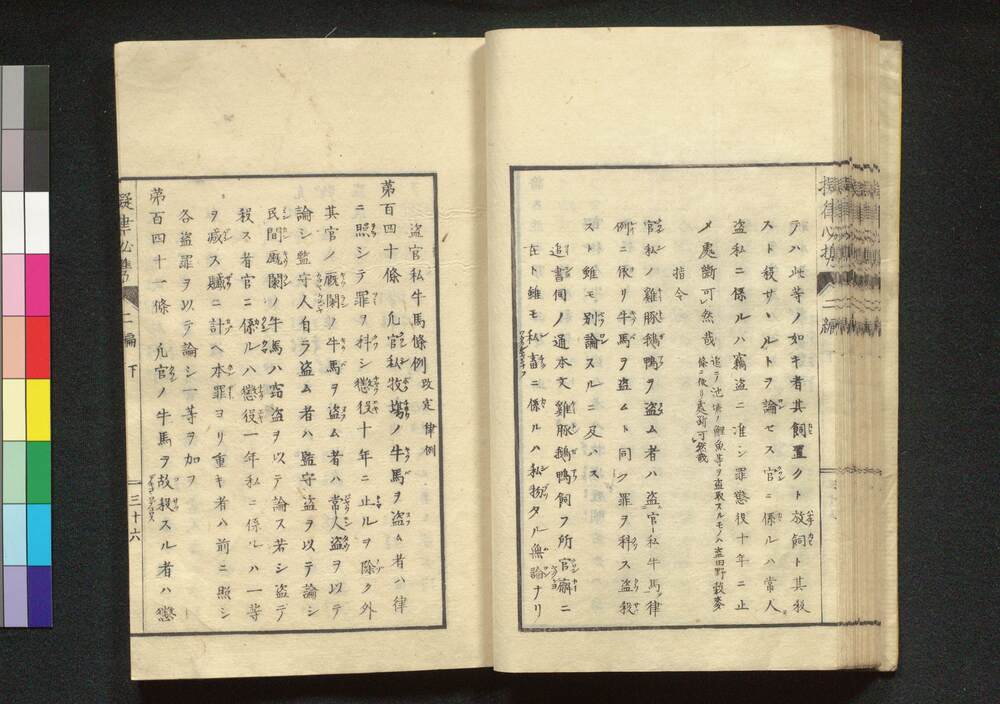 テハ此等ノ如キ者其飼置クト放飼ト其殺
スト殺サヽルトヲ論セス官ニ係ルハ常人
盗私ニ係ルハ竊盗ニ准シ罪懲役十年ニ止
メ處斷可レ然哉
追テ池塘ノ鯉魚等ヲ盗取スルモノハ盗田野穀麥
條ニ依リ處斷可レ然哉
指令
官私ノ雞豚鵝鴨ヲ盗ム者ハ盗官私牛馬律
例ニ依リ牛馬ヲ盗ムト同ク罪ヲ科ス盗殺
スト雖モ別論スルニ及ハス
追書伺ノ通本文雞豚鵝鴨飼フ所官廨ニ
在ト雖モ私畜ニ係ルハ私物タル無論ナリ
盗官私牛馬條例 改定律例
第百四十條 凡官私牧塲ノ牛馬ヲ盗ム者ハ律
ニ照シテ罪ヲ科シ懲役十年ニ止ルヲ除ク外
其官ノ厩闌ノ牛馬ヲ盗ム者ハ常人盗ヲ以テ
論シ監守人自ラ盗ム者ハ監守盗ヲ以テ論シ
民間厩闌ノ牛馬ハ窃盗ヲ以テ論ス若シ盗テ
殺ス者官ニ係ルハ懲役一年私ニ係ルハ一等
ヲ减ス贓ニ計ヘ本罪ヨリ重キ者ハ前ニ照シ
各盗罪ヲ以テ論シ一等ヲ加フ
第百四十一條 凡官ノ牛馬ヲ故殺スル者ハ懲
二編 下
三十六